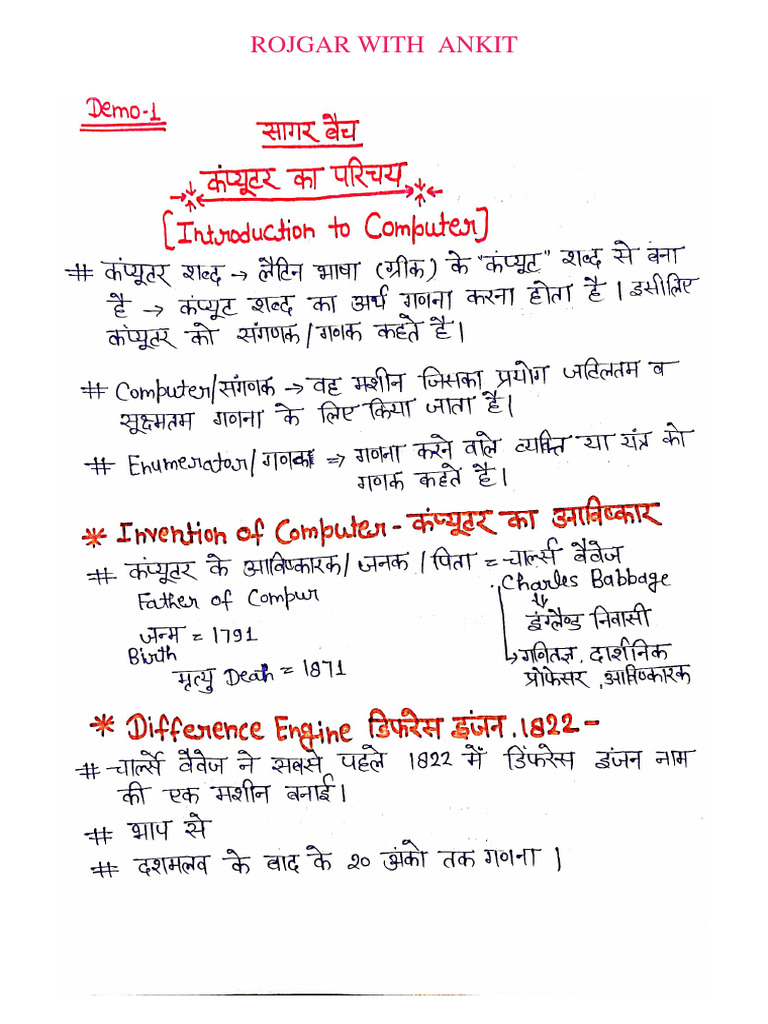 ROJGAR WITH ANKIT
Demo-1
सागर बैच
कंप्यूटर का परिचय
[Introduction to Computer]
# कंप्यूतर शब्द → लैटिन भाषा (ग्रीक) के "कंप्यूट" शब्द से बना
है → कंप्यूट शब्द का अर्थ गणना करना होता है। इसीलिए
कंप्यूतर को संगणक/गणक कहते है।
# Computer/संगणक → वह मशीन जिसका प्रयोग जटिलतम व
सूक्ष्मतम गणना के लिए किया जाता है।
# Enumerator/गणक ⇒ गणना करने वाले व्यक्ति या यंत्र को
गणक कहते है।
* Invention of Computer - कंप्यूटर का आविष्कार
# कंप्यूटर के आविष्कारक/जनक/पिता = चार्ल्स बैवेज
Father of Compur
Charles Babbage
⇓
इंग्लैण्ड निवासी
जन्म = 1791
Birth
↳ गणितज्ञ, दार्शनिक
मृत्यु Death = 1871
प्रोफेसर, आविष्कारक
* Difference Engine डिफरेंस इंजन. 1822 -
# चार्ल्स वैवेज ने सबसे पहले 1822 में डिफरेंस इंजन नाम
की एक मशीन बनाई।
# भाप से
# दशमलव के बाद के २० अंको तक गणना।